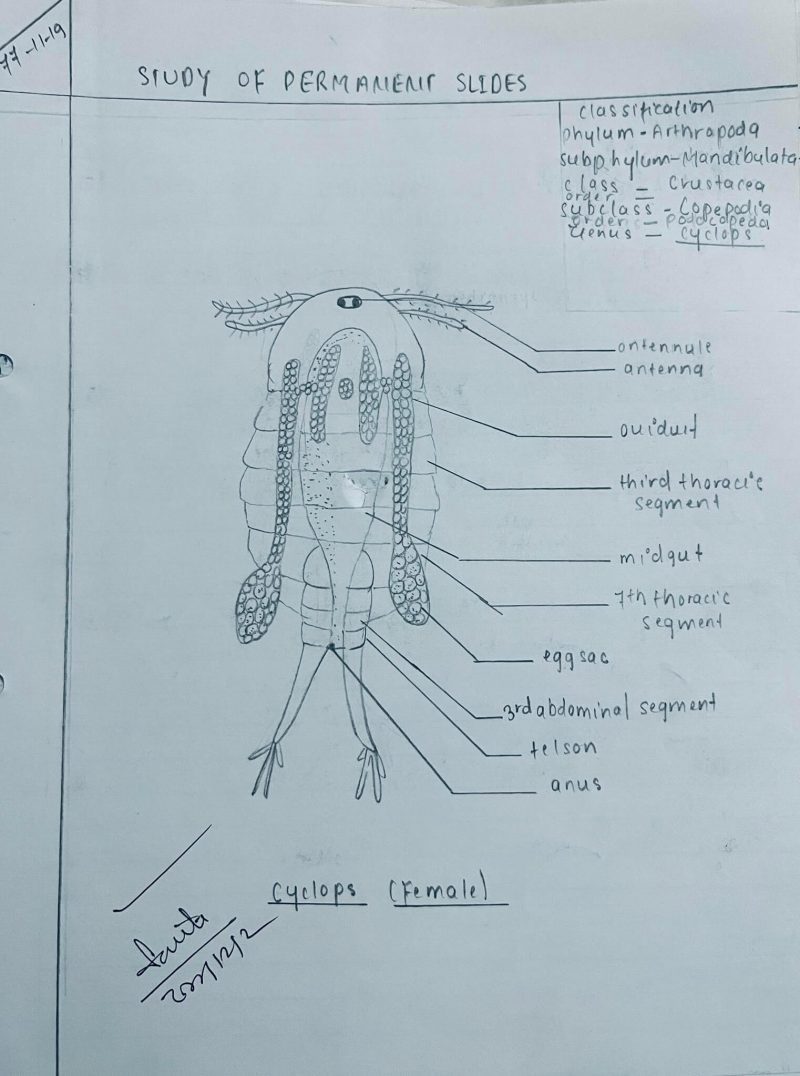 77-11-19
STUDY OF PERMANENT SLIDES
classification
phylum - Arthropoda
subphylum-Mandibulata
class = Crustacea
order
subclass - Copepodia
order =
Genus = cyclops
antennule
antenna
oviduit
third thoracic
segment
midgut
7th thoracic
segment
egg sac
3rd abdominal segment
telson
anus
Cyclops (Female)